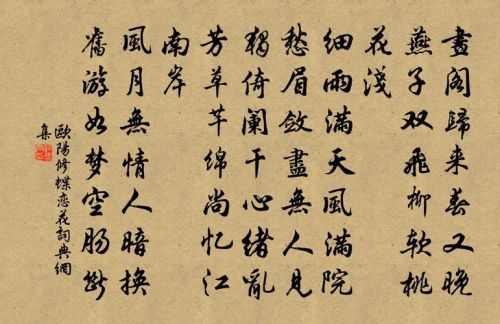 畫閣歸来春又晚
燕子双飛柳软桃
花淺
细雨滿天風滿院
愁眉敛盡無人見
獨倚阑干心緒亂
芳草芊绵尚忆江
南岸
風月無情人暗换
舊游如梦空肠断
歐陽修蝶恋花詞典網
集